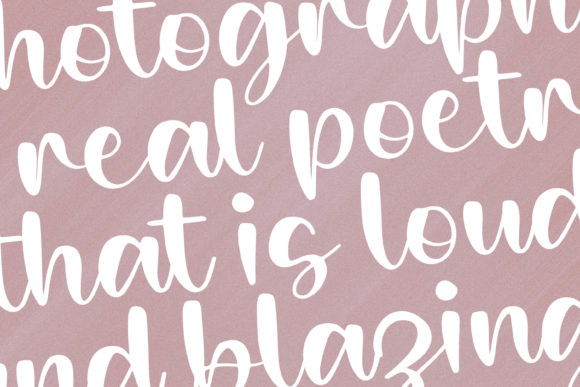 hotograph
real poetr
that is loud
and blazing